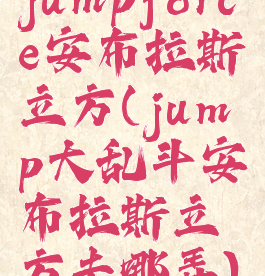 jumpforc
e安布拉斯
立方(jum
p大乱斗安
布拉斯立
方去哪弄)